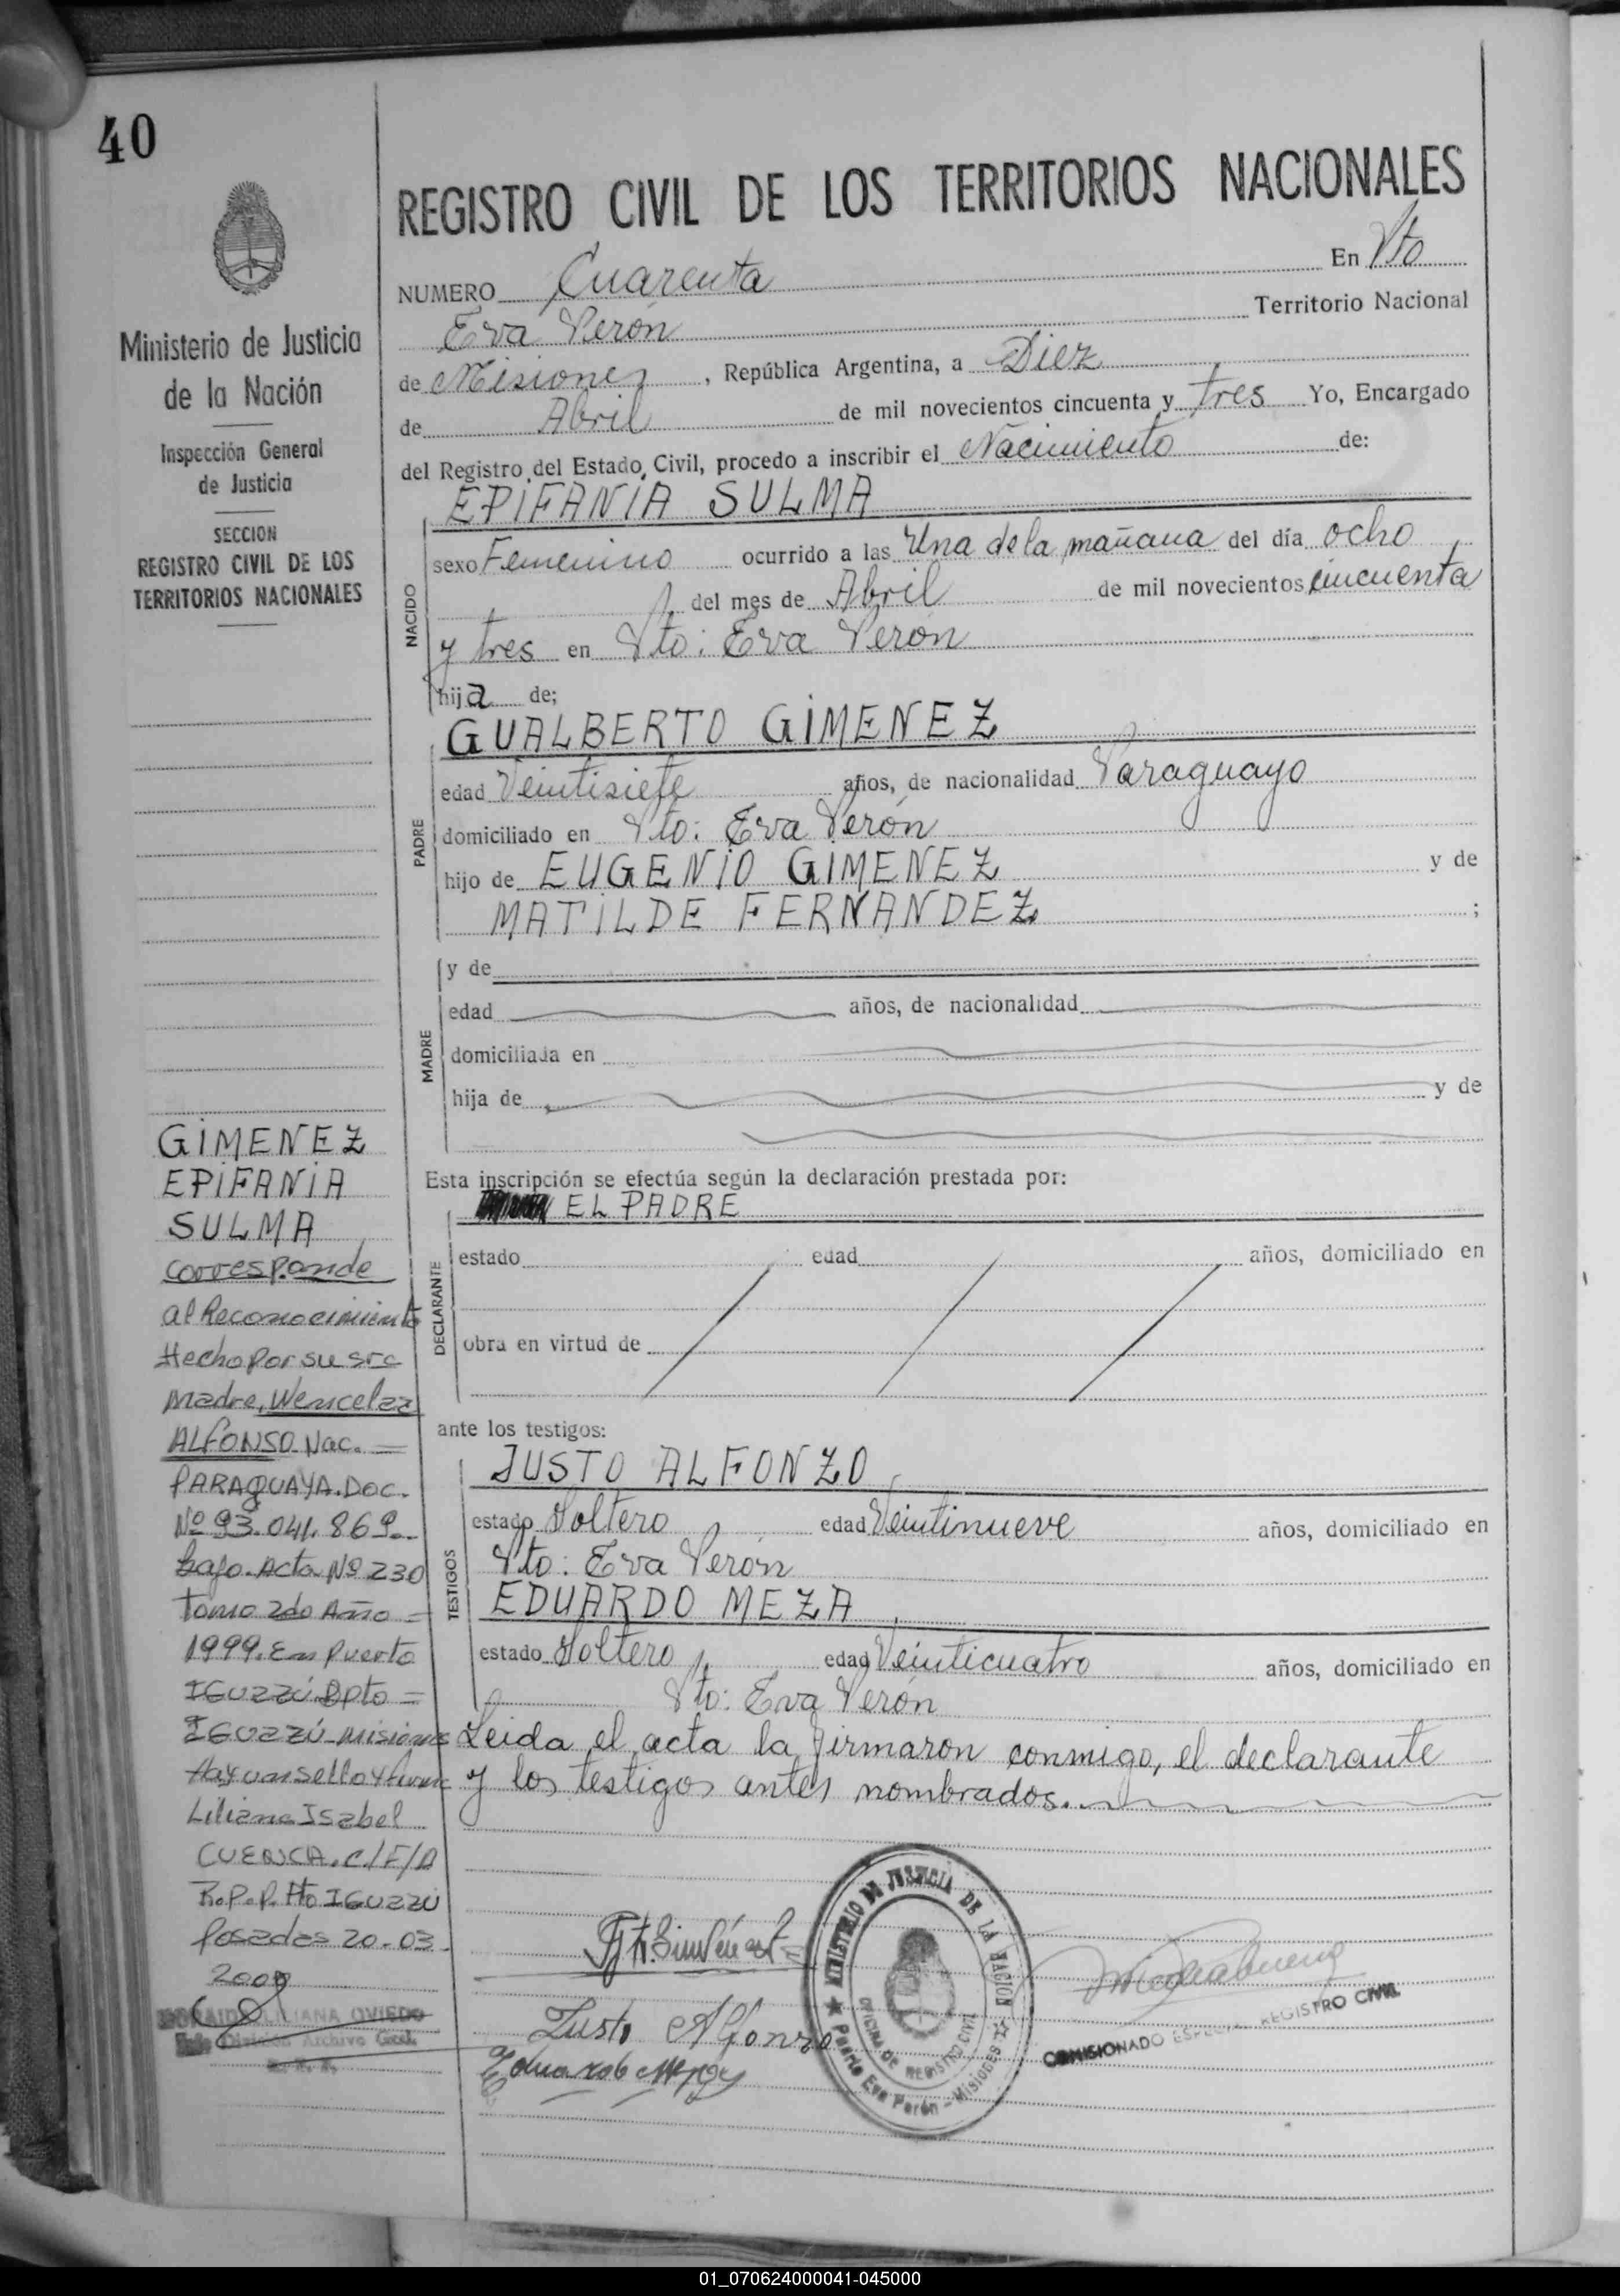 40
Ministerio de Justicia
de la Nación
Inspección General
de Justicia
SECCION
REGISTRO CIVIL DE LOS
TERRITORIOS NACIONALES
REGISTRO CIVIL DE LOS TERRITORIOS NACIONALES
NUMERO Cuarenta En Pto
Eva Perón Territorio Nacional
de Misiones, República Argentina, a Diez
de Abril de mil novecientos cincuenta y tres Yo, Encargado
del Registro del Estado Civil, procedo a inscribir el Nacimiento de:
EPIFANIA SULMA
NACIDO
sexo Femenino ocurrido a las Una de la mañana del día ocho
del mes de Abril de mil novecientos cincuenta
y tres en Pto: Eva Perón
hija de;
GUALBERTO GIMENEZ
PADRE
edad Veintisiete años, de nacionalidad Paraguayo
domiciliado en Pto: Eva Perón
hijo de EUGENIO GIMENEZ y de
MATILDE FERNANDEZ ;
MADRE
y de
edad años, de nacionalidad
domiciliada en
hija de y de
Esta inscripción se efectúa según la declaración prestada por:
EL PADRE
DECLARANTE
estado edad años, domiciliado en
obra en virtud de
ante los testigos:
TESTIGOS
JUSTO ALFONZO
estado Soltero edad Veintinueve años, domiciliado en
Pto: Eva Perón
EDUARDO MEZA
estado Soltero edad Veinticuatro años, domiciliado en
Pto: Eva Perón
Leida el acta la firmaron conmigo, el declarante
y los testigos antes nombrados.
GIMENEZ
EPIFANIA
SULMA
corresponde
al Reconocimiento
Hecho por su sra
Madre, Wencelaa
ALFONSO Nac.
PARAGUAYA. DOC.
Nº 93.041.869
bajo Acta Nº 230
Tomo 2do Año =
1999. En Puerto
IGUAZÚ Dpto =
IGUAZÚ Misiones
Hay un sello y firma
Liliana Isabel
CUENCA. C/F/D
R.P.P. Pto IGUAZÚ
Posadas 20-03
2000
LILIANA OVIEDO
División Archivo Gral.
Justo Alfonzo
MINISTERIO DE JUSTICIA DE LA NACION
OFICINA DE REGISTRO CIVIL
Puerto Eva Perón - Misiones
COMISIONADO ESPECIAL REGISTRO CIVIL
01_070624000041-045000